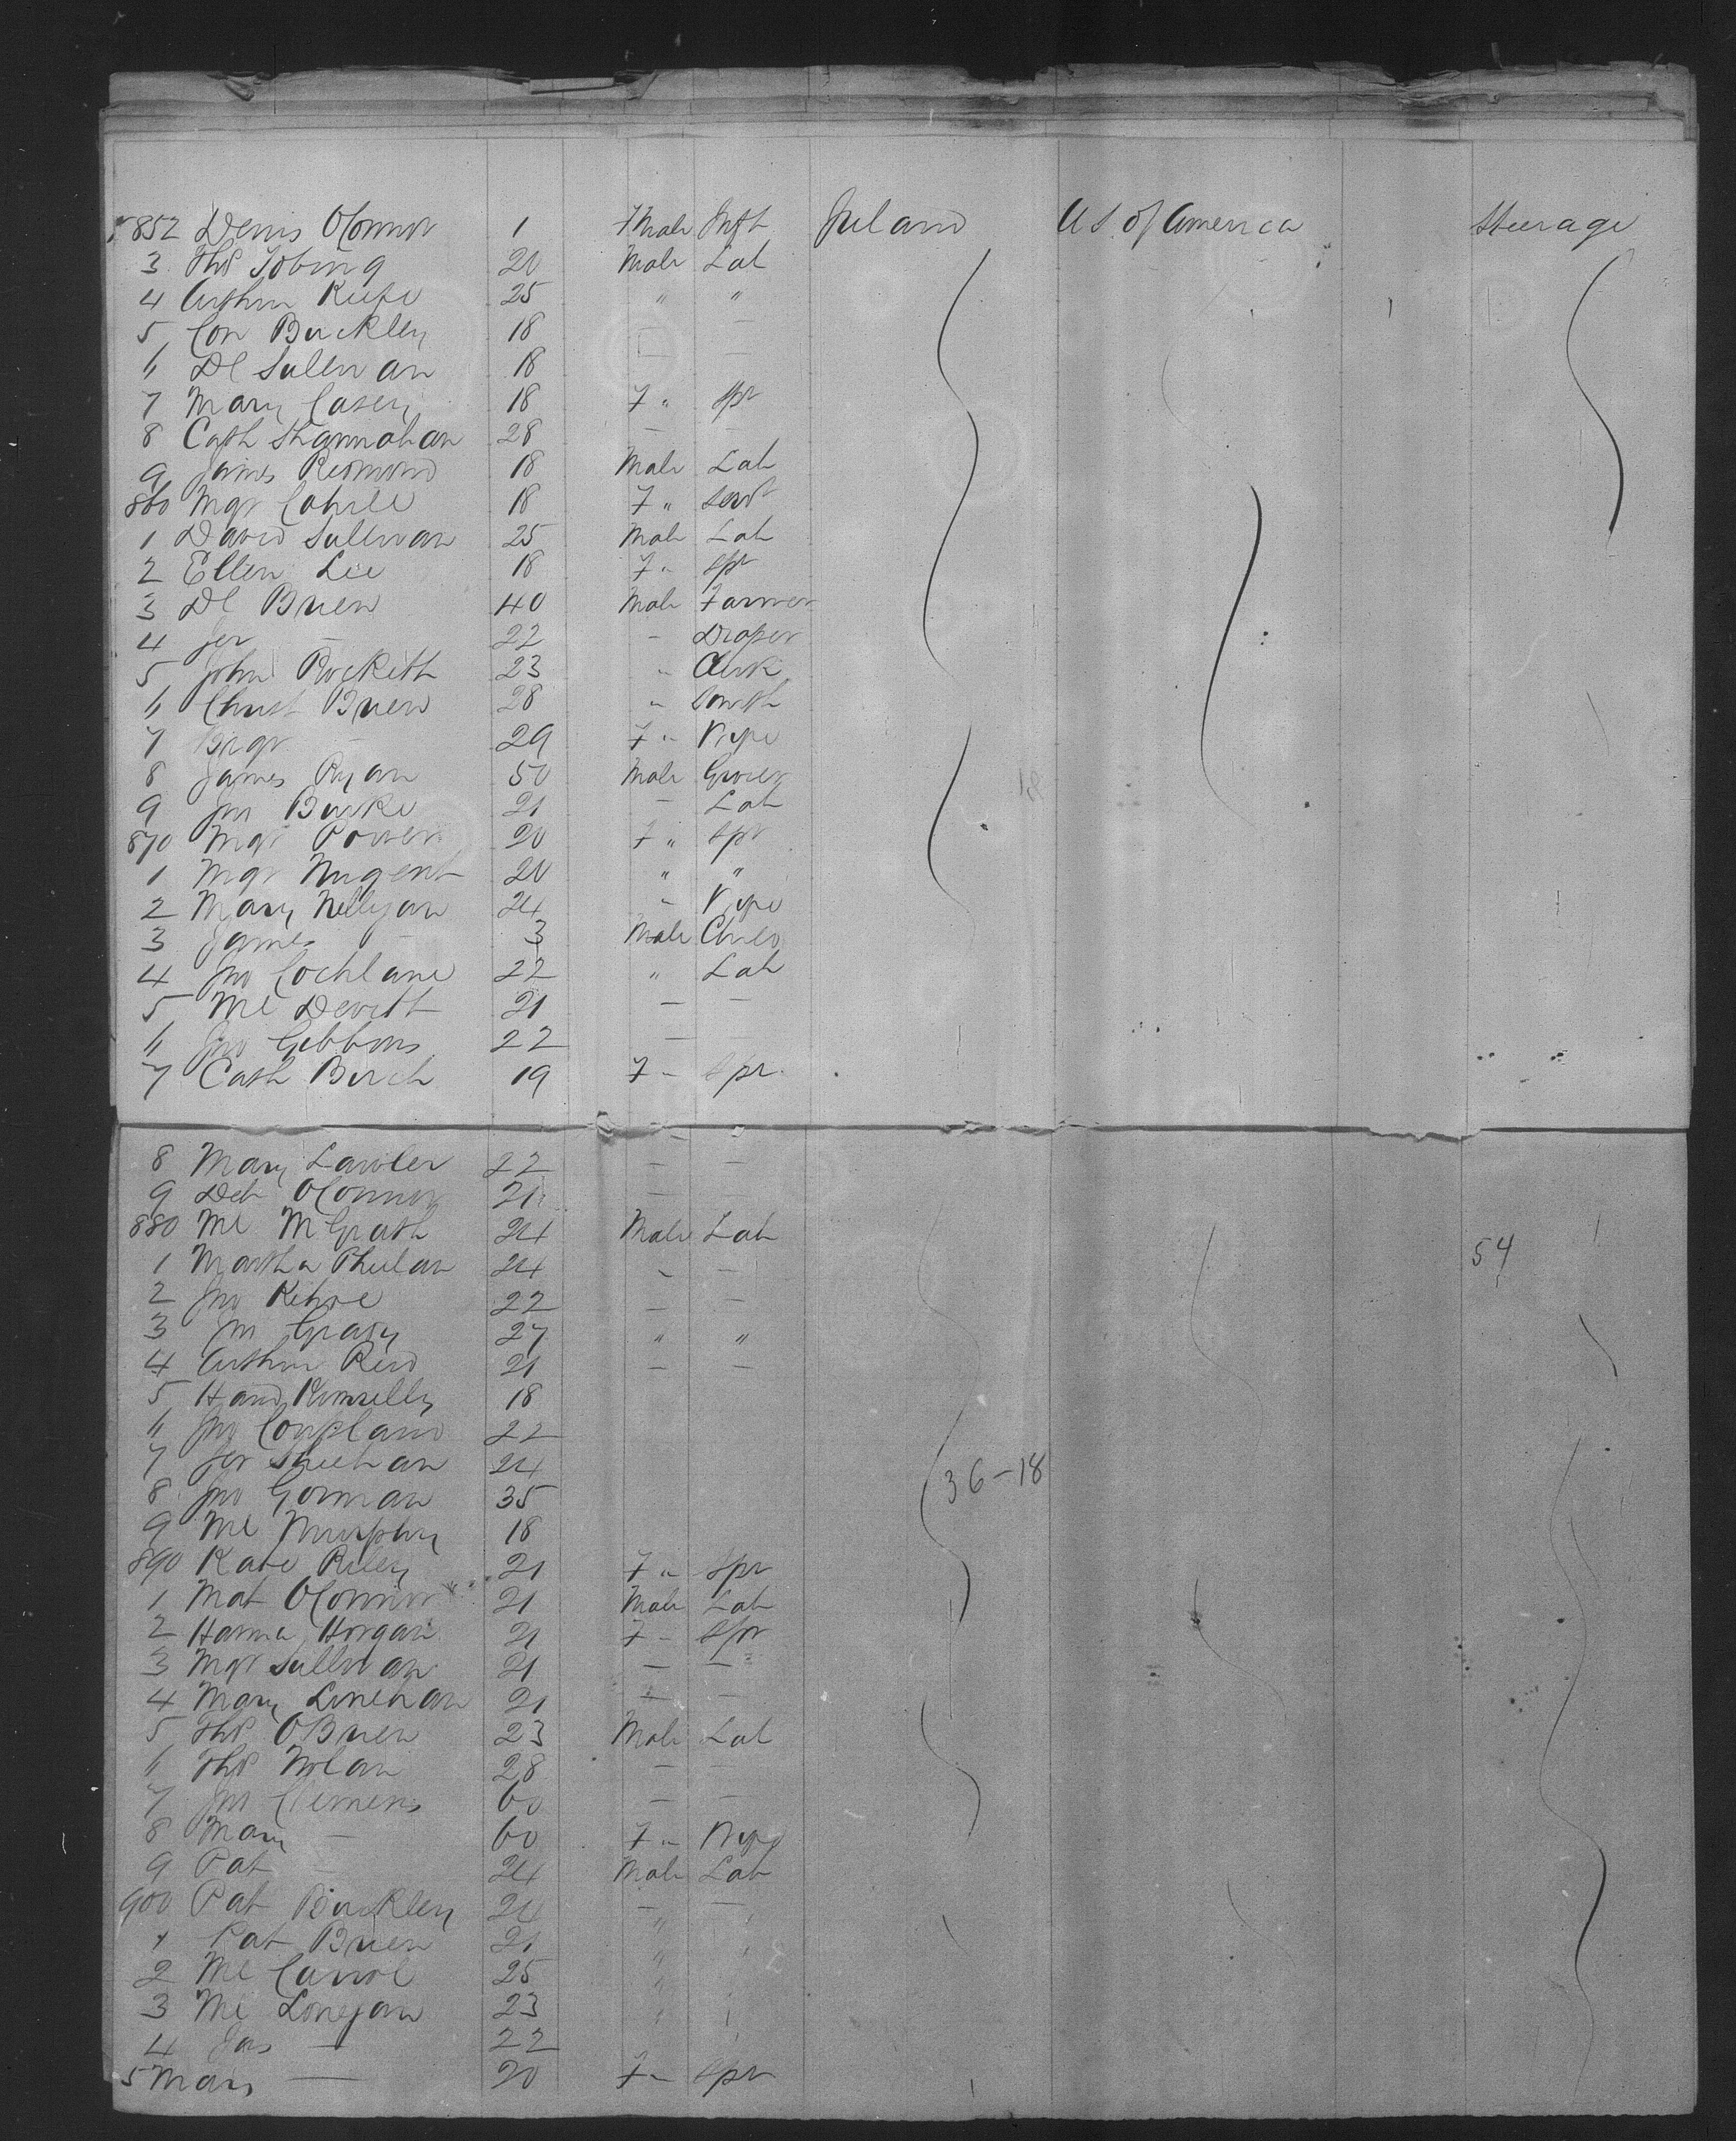 852 Denis OConnor 1 FMale Inft Ireland US of America Steerage
3 Ths Tobing 20 Male Lab
4 Arthur Keefe 25 " "
5 Con Buckley 18 — —
6 Dl Sullivan 18 — —
7 Mary Casey 18 F " Spr
8 Cath Shannahan 28 — —
9 James Redmond 18 Male Lab
860 Mgr Cahill 18 F " Servt
1 David Sullivan 25 Male Lab
2 Ellen Lee 18 F " Spr
3 Dl Brien 40 Male Farmer
4 Jer — 22 — Draper
5 John Pockett 23 " Clerk
6 Christ Brien 28 " Smith
7 Brgt — 29 F " Wife
8 James Ryan 50 Male Grocer
9 Jno Burke 21 — Lab
870 Mgr Power 20 F " Spr
1 Mgr Nugent 20 " "
2 Mary 24 " Wife
3 James — 3 Male Child
4 Jno Cochlane 22 " Lab
5 Ml Devitt 21 — —
6 Jno Gibbons 22 —
7 Cath Birch 19 F " Spr
8 Mary Lawler 22 — —
9 Deb OConnor 21 — —
880 Ml McGrath 24 Male Lab
1 Martha Phelan 24 " — 54
2 Jno Kehoe 22 — —
3 Jno Grady 27 " "
4 Arthur Reid 21 — —
5 18
6 Jno Coupland 22
7 Jer Sheehan 24
8 Jno Gorman 35 36-18
9 Ml Murphy 18
890 Kate Riley 21 F " Spr
1 Mat OConnor 21 Male Lab
2 Hanna Horgan 21 F " Spr
3 Mgr Sullivan 21 — —
4 Mary Linehan 21 — —
5 Ths OBrien 23 Male Lab
6 Ths Nolan 28 — —
7 Jno Clemens 60 — —
8 Mary — 60 F " Wife
9 Pat — 24 Male Lab
900 Pat Buckley 24 — —
1 Pat Brien 21 " "
2 Ml Carrol 25 "
3 Ml Lonegan 23 " "
4 Jas — 22
5 Mary — 20 F " Spr